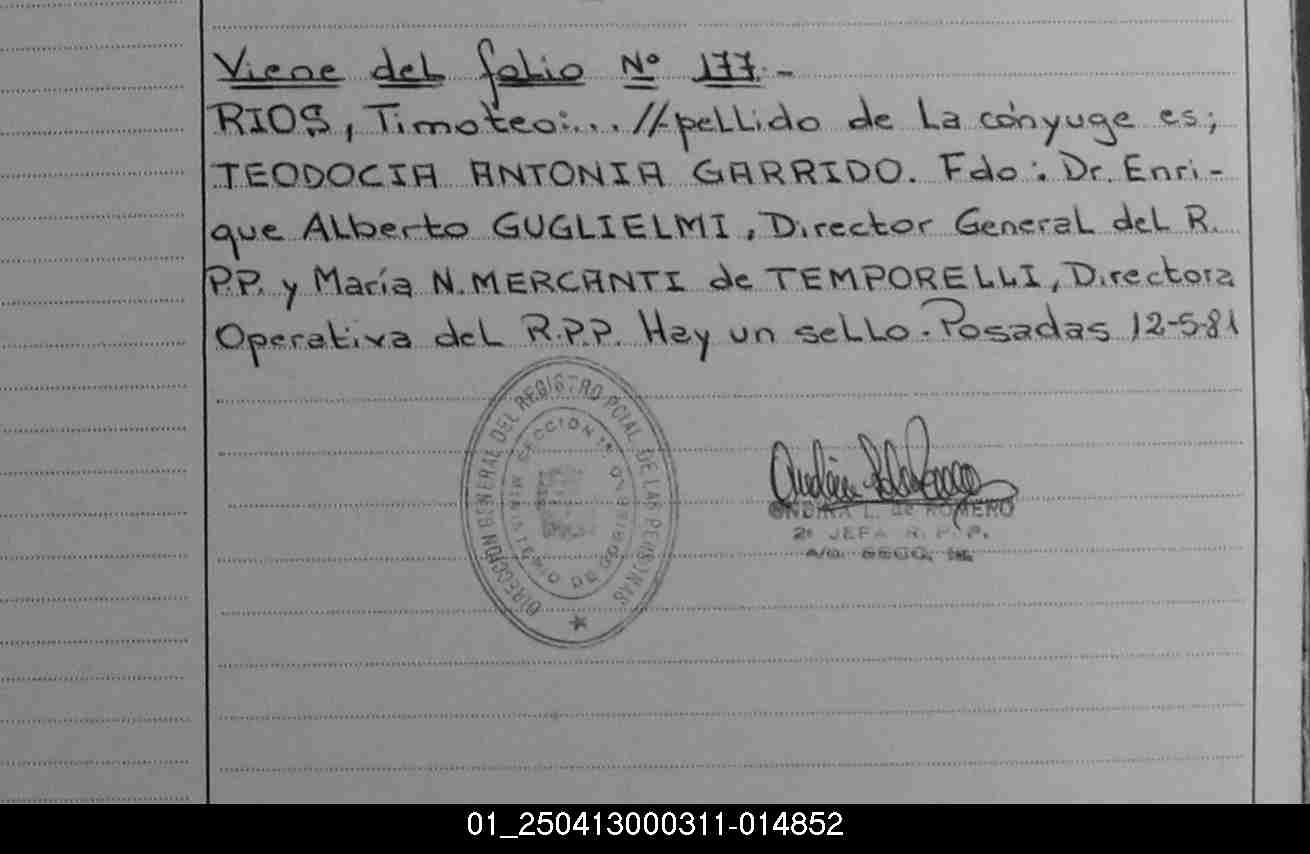 Viene del folio Nº 177.-
RIOS, Timoteo:... //-pellido de la cónyuge es;
TEODOCIA ANTONIA GARRIDO. Fdo: Dr. Enri-
que Alberto GUGLIELMI, Director General del R.
P.P. y María N. MERCANTI de TEMPORELLI, Directora
Operativa del R.P.P. Hay un sello. Posadas 12-5-81
DIRECCION GENERAL DEL REGISTRO PCIAL. DE LAS PERSONAS
SECCION
MINISTERIO DE GOBIERNO
ONDINA L. de ROMERO
2º JEFA R.P.P.
01_250413000311-014852